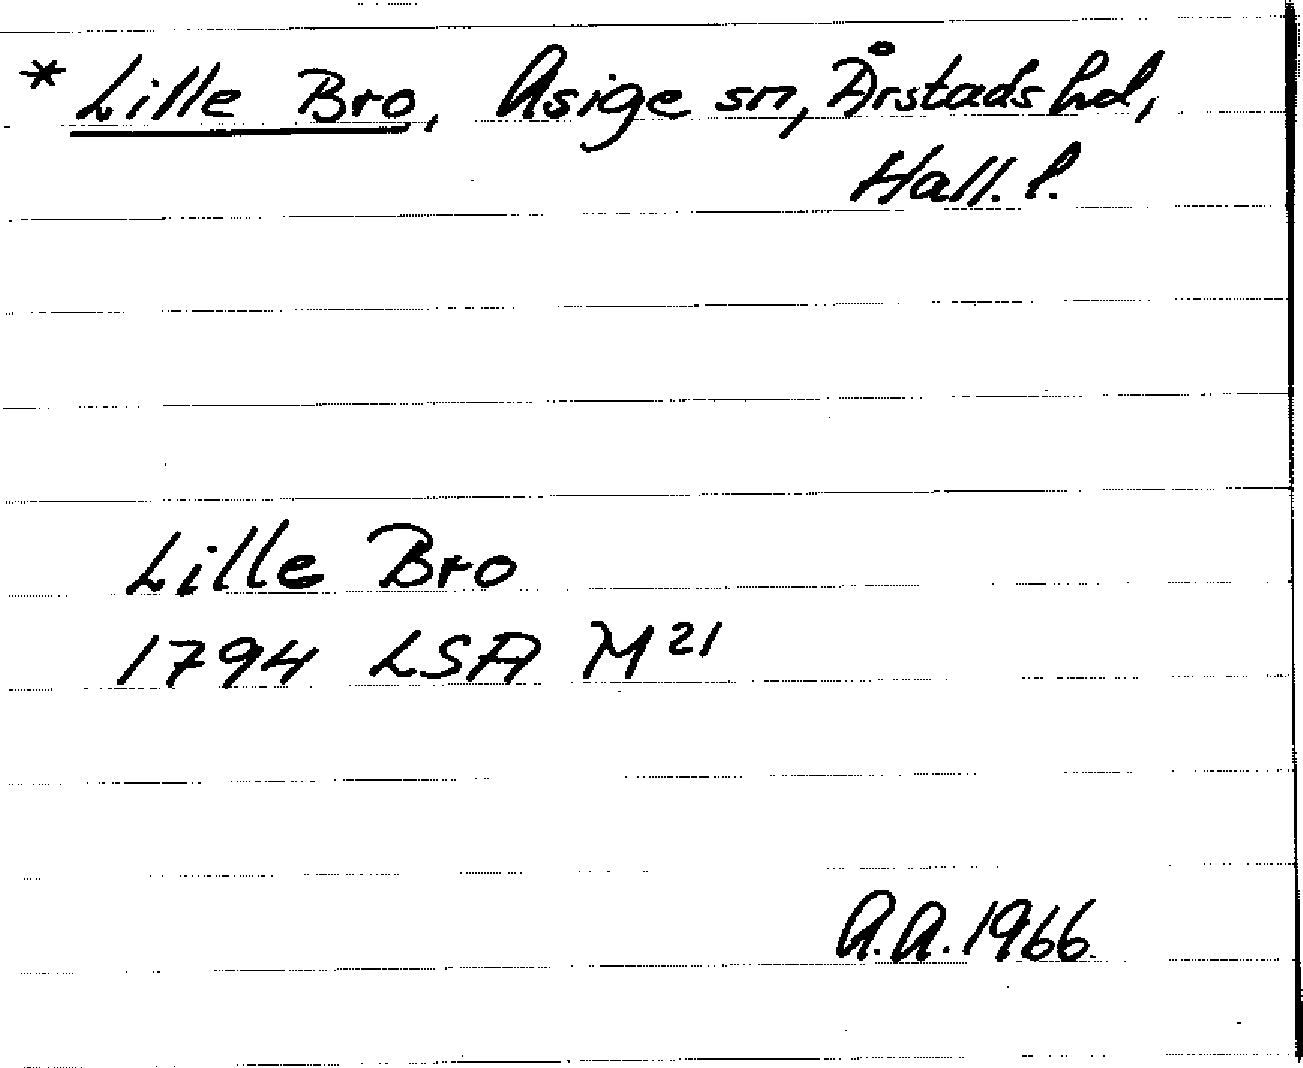 * Lille Bro, Asige sn, Årstads hd,
Hall. l.
Lille Bro
1794 LSA M²¹
A.A. 1966.